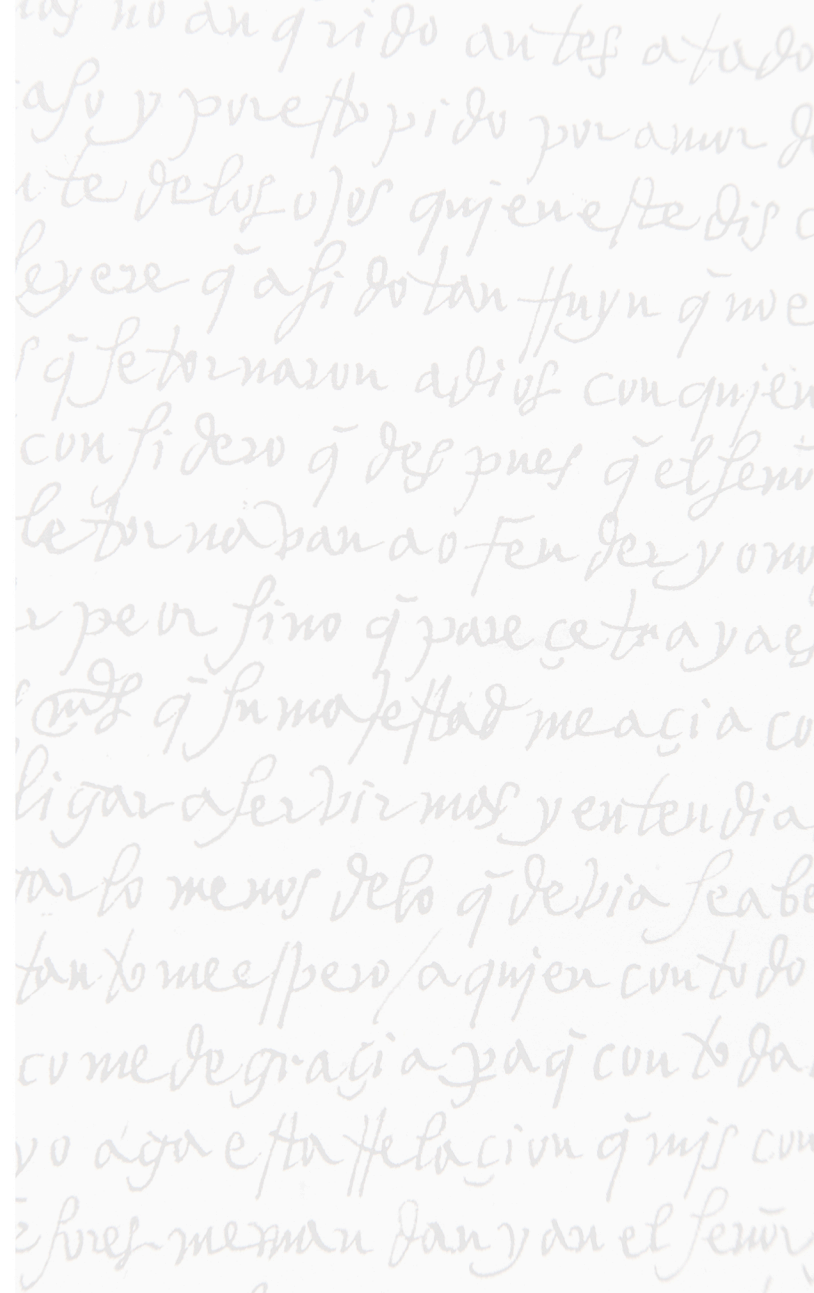 no an q̄rido antes atado
y por esto pido por amor
te de los ojos quien este dis
leyere q̄ a sido tan rruyn q̄ no e
q̄ se tornaron a dios con quien
considero q̄ despues q̄ el señor
le tornavan a ofender y o no
peor sino q̄ pareçe traya es
mds q̄ su majestad me açia co
ligar a servir mas y entendia
gar lo menos de lo q̄ devia sea be
tanto me espero / a quien con todo
co me de graçia paq̄ con toda
yo aga esta rrelaçion q̄ mis con
fesores me mandan y an el señor